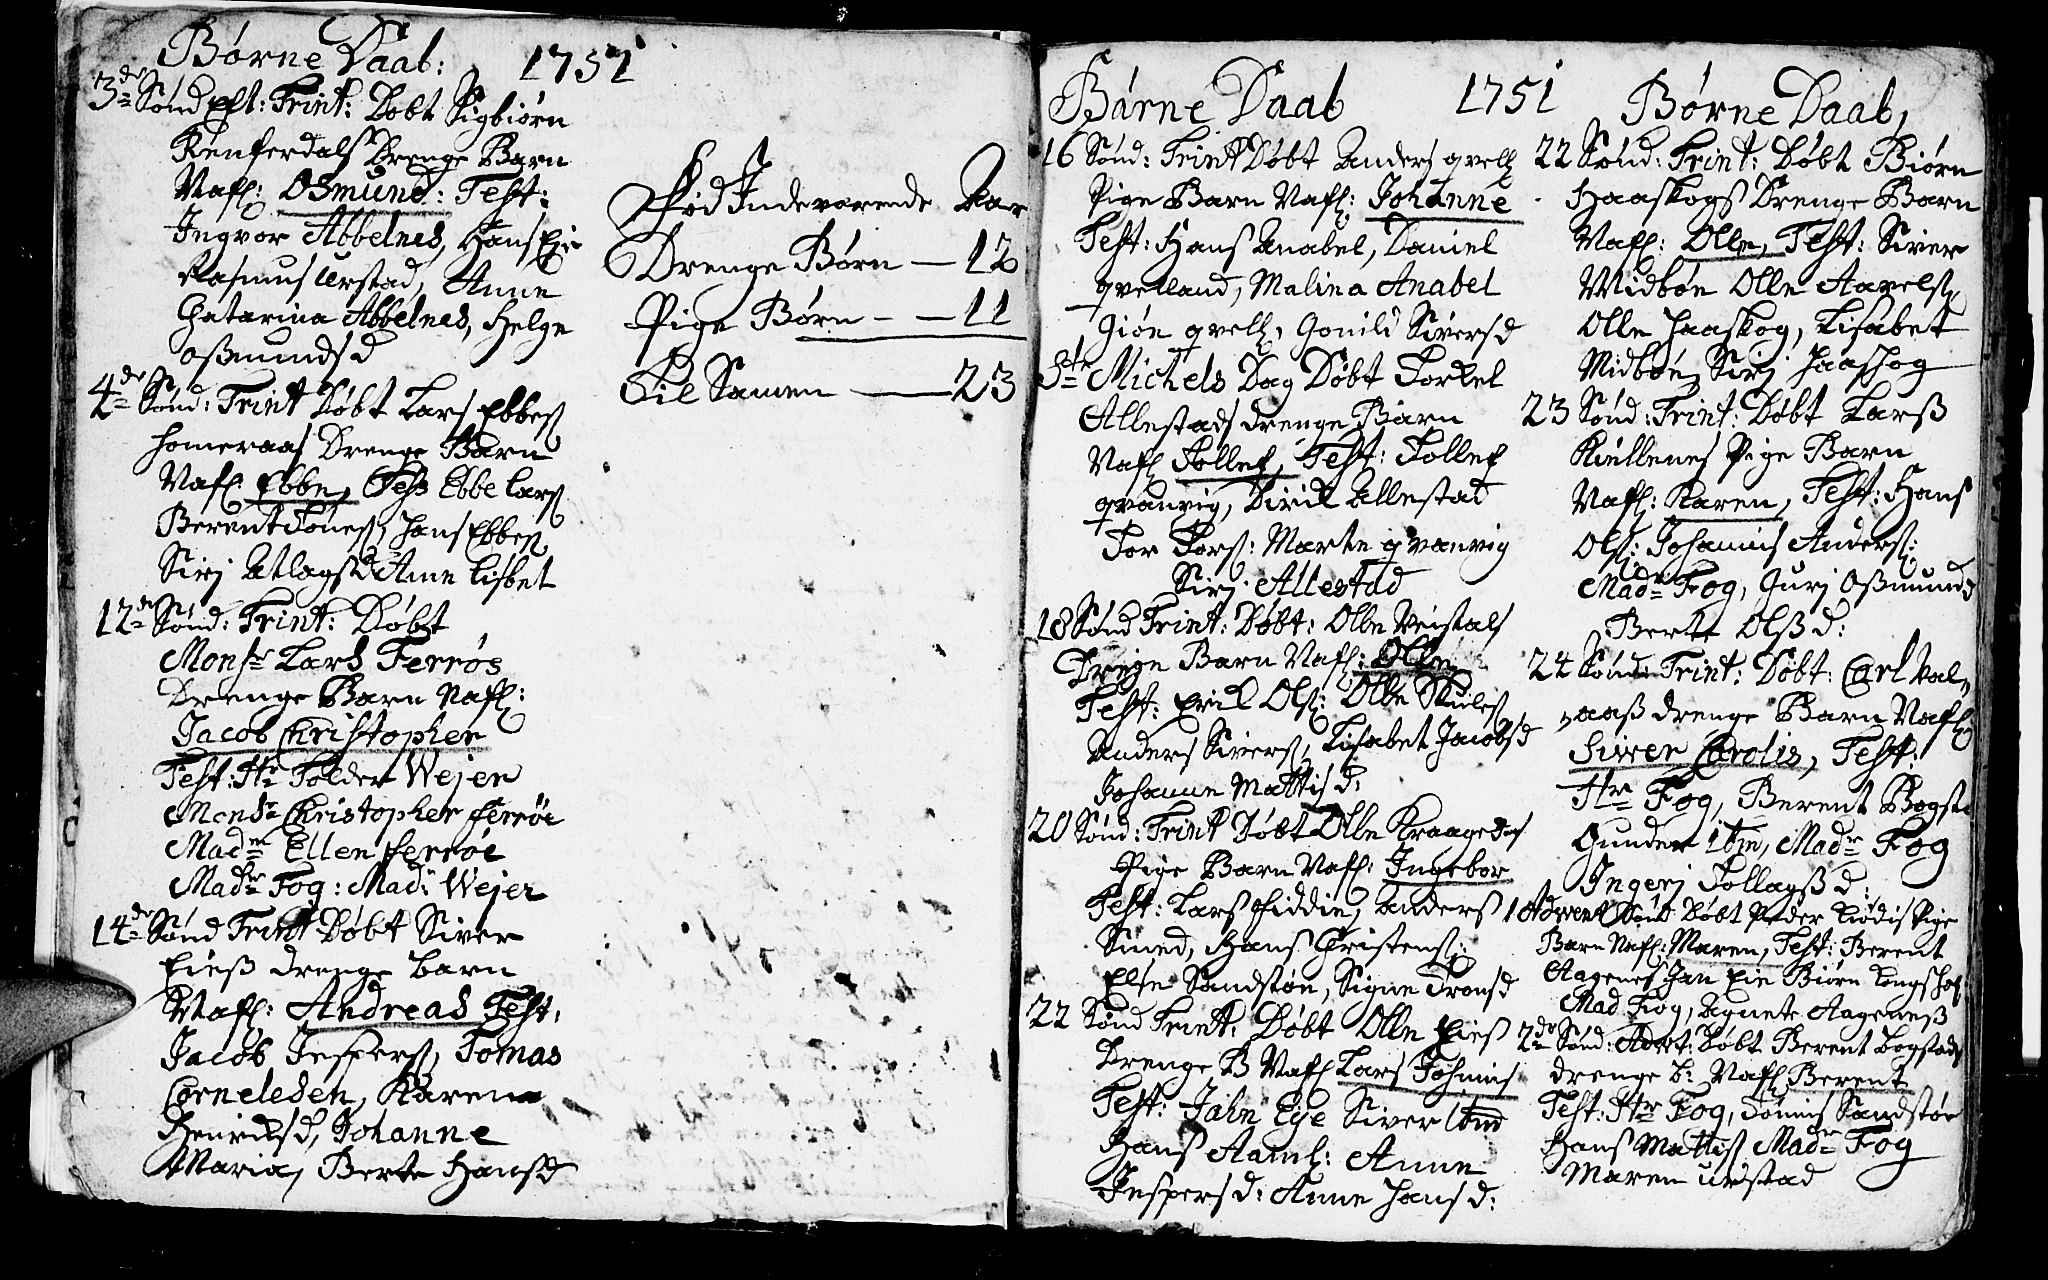 Børne Daab: 1751
3de Sønd Eft: Trint: Døbt Sigbiørn
Drenge Barn
Nafl: Osmund: Test:
Ingvor Abbelnes, Hans Eie
Rasmus Urstad, Anne
Catarina Abbelnes, Helge
Osmundsd
4de Sønd: Trint Døbt Lars Ebbes
Homeraas Drenge Barn
Nafl: Ebbe, Test Ebbe Lars
Berent Tønes, Hans Ebbes
Sirj Atlagsd Anne Lisbet
12de Sønd: Trint: Døbt
Monsr Lars Ferrøs
Drenge Barn Nafl:
Jacob Christopher
Test: Hr Tolder Wejer
Monsr Christopher Ferrøe
Madm Ellen Ferrøe
Madme Fog: Mad: Wejer
14de Sønd Trint Døbt Siver
Eies drenge Barn
Nafl: Andreas Test:
Jacob Jespers, Tomas
Corneleden, Karen
Henrichsd, Johanne
Maria, Berte Hansd
Fød Indeværende Aar
Drenge Børn — 12
Pige Børn — — 11
Til Samen — 23
Børne Daab 1751
16 Sønd: Trint Døbt Anders qvell
Pige Barn Nafl: Johanne
Test: Hans Anabel, Daniel
qvelland, Malina Anabel
Giøn qvell, Gonild Siversd
Ste Michels Dag Døbt Torkel
Allestads drenge Barn
Nafl Tollef, Test: Tollef
qvanvig, Dirik Allestad
Tor Tors: Marte qvanvig
Sirj Allestad
18 Sønd Trint: Døbt: Olle Veistals
Drenge Barn Nafl: Olle
Test: Erik Ols: Olle Skieles
Anders Sivers, Lisabet Jacobsd
Johanne Mattisd:
20 Sønd: Trint Døbt Olle Kraagedas
Pige Barn Nafl: Ingebor
Test: Lars Fiddie, Anders
Smed, Hans Christens:
Else Sandstøe, Signe Tronsd
22 Sønd Trint: Døbt Olle Eies
Drenge B Nafl Lars Johanis
Test: Jahn Eye Siver itm
Hans Aaml: Anne
Jespersd: Anne Hansd:
Børne Daab,
22 Sønd: Trint: Døbt Biørn
Haaskogs Drenge Barn
Nafl: Olle, Test: Siver
Midbøe Olle Aarels
Olle Haaskog, Lisabet
Midbøe, Sirj Haaskog
23 Sønd: Trint: Døbt Lars
Kiellenes Pige Barn
Nafl: Karen, Test: Hans
Ols: Johanis Anders:
Madme Fog, Gurj Osmundsd
Berte Olsd:
24 Sønd: Trint: Døbt: Carl Val-
-aas drenge Barn Nafl
Siver Carolis, Test:
Hr Fog, Berent Bogsta
Gunder itm, Madme Fog
Ingerj Tollagsd:
1 Advent Sønd Døbt Peder Pige
Barn Nafl: Maren, Test: Berent
Aagenes Jan Eie Biørn Kongshaf
Mad Fog, Agnete Aagenes
2de Sønd: Advt: Døbt Berent Bogstads
drenge b: Nafl Berent
Test: Hr Fog, Tønnis Sandstøe
Hans Mattis Madme Fog
Maren Urstad